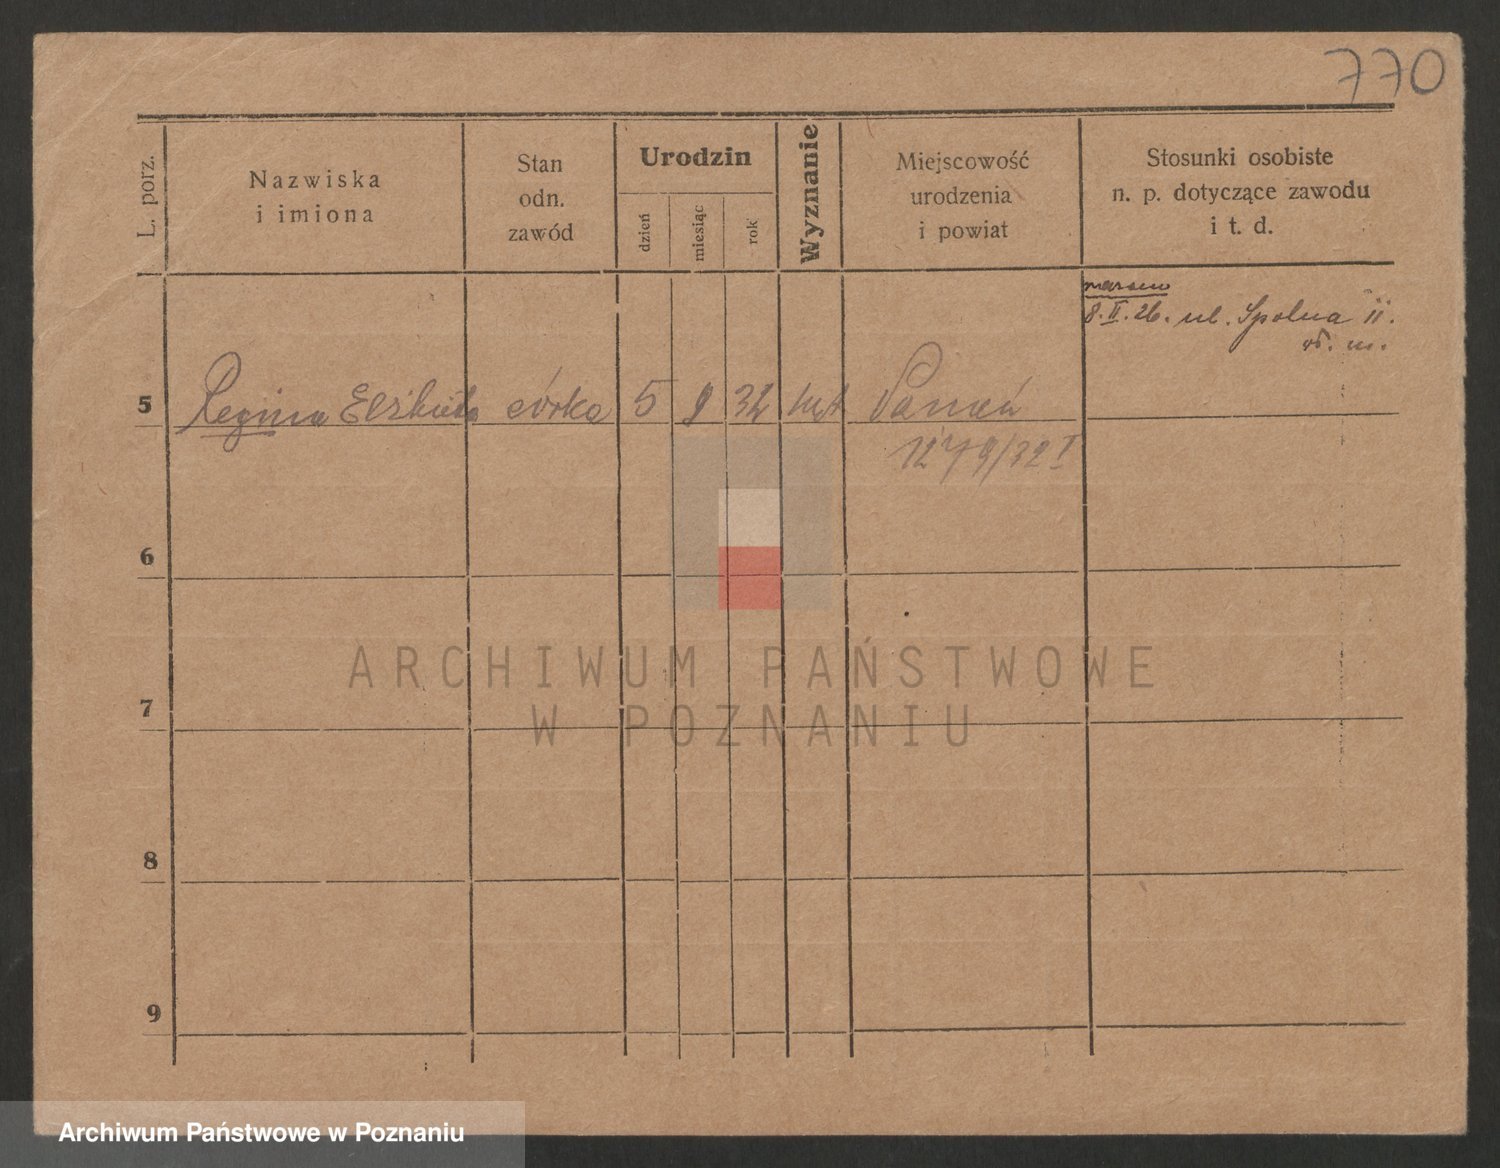 770
L. porz.
Nazwiska
i imiona
Stan
odn.
zawód
Urodzin
dzień
miesiąc
rok
Wyznanie
Miejscowość
urodzenia
i powiat
Stosunki osobiste
n. p. dotyczące zawodu
i t. d.
8. II. 26. ul. Spolna 11.
5 Regina Elżbieta córka 5 9 32 Poznań
1279/32 I
6
7
8
9
ARCHIWUM PAŃSTWOWE
W POZNANIU
Archiwum Państwowe w Poznaniu